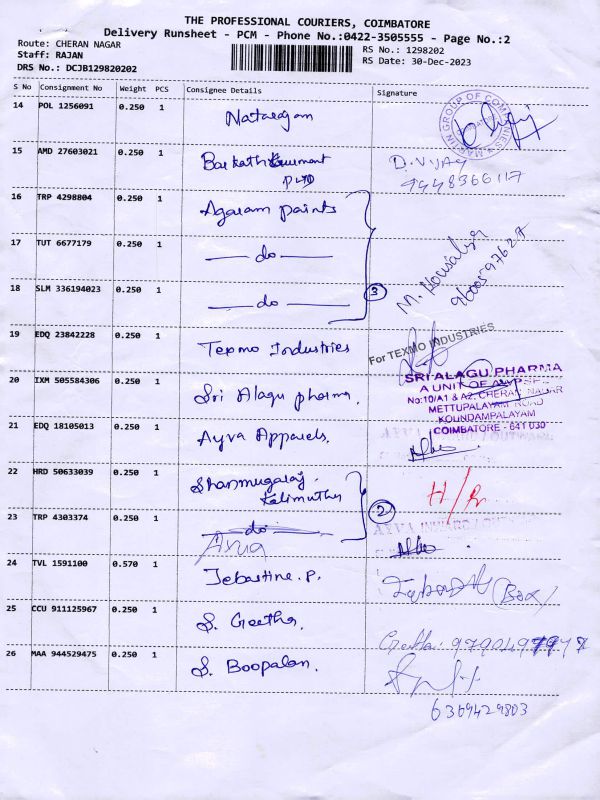 THE PROFESSIONAL COURIERS, COIMBATORE
Delivery Runsheet - PCM - Phone No.:0422-3505555 - Page No.:2
Route: CHERAN NAGAR
RS No.: 1298202
Staff: RAJAN
RS Date: 30-Dec-2023
DRS No.: DCJB129820202
S No Consignment No Weight PCS Consignee Details Signature
14 POL 1256091 0.250 1 Natarajan
15 AMD 27603021 0.250 1 Barkath
P LTD
D. VIJAY
9448366117
16 TRP 4298804 0.250 1 Agaram paints
17 TUT 6677179 0.250 1 — do —
18 SLM 336194023 0.250 1 — do — 3
96005 97627
19 EDQ 23842228 0.250 1 Texmo Industries
For TEXMO INDUSTRIES
20 IXM 505584306 0.250 1 Sri Alagu pharma.
SRI ALAGU PHARMA
A UNIT OF
No:10/A1 & A2, CHERAN NAGAR
METTUPALAYAM ROAD
KOUNDAMPALAYAM
COIMBATORE - 641 030
21 EDQ 18105013 0.250 1 Ayra Apparels.
22 HRD 50633039 0.250 1 Shanmugaraj.
Kalimuthu
2
23 TRP 4303374 0.250 1 do
24 TVL 1591100 0.570 1 Jebastine. P. (Box)
25 CCU 911125967 0.250 1 S. Geetha, Geetha:
26 MAA 944529475 0.250 1 S. Boopalan.
6369429803